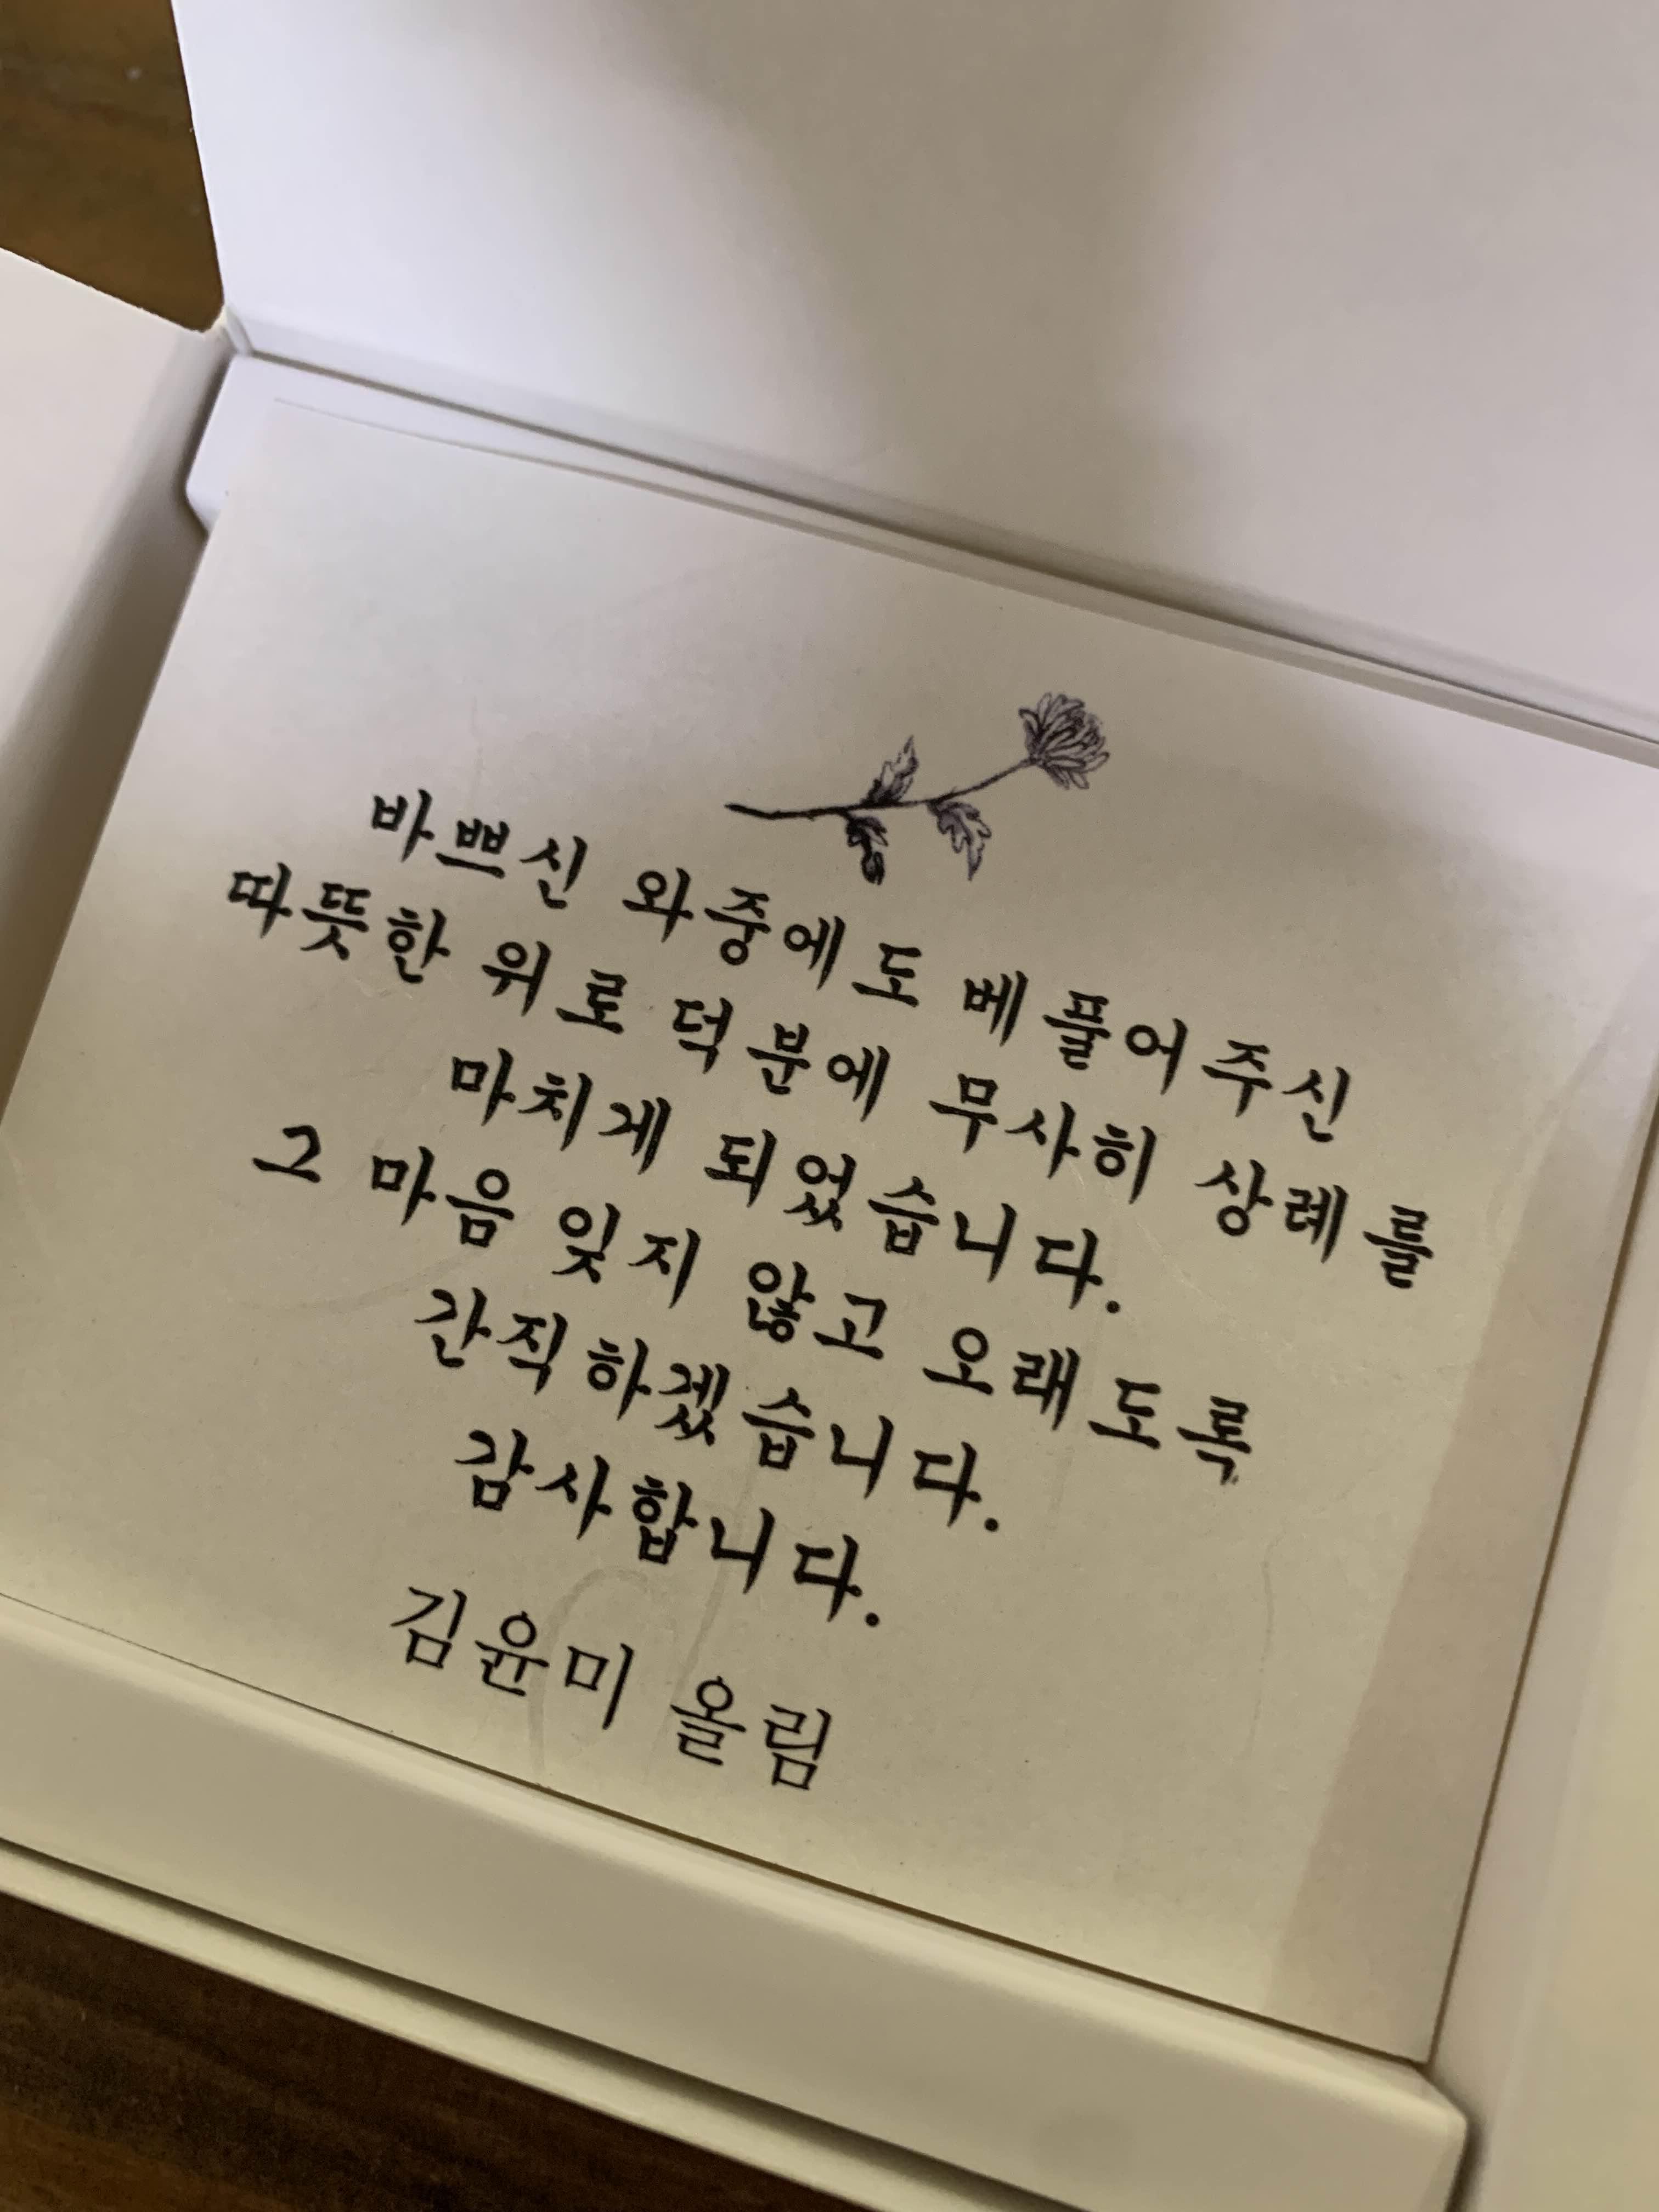 바쁘신 와중에도 베풀어주신
따뜻한 위로 덕분에 무사히 상례를
마치게 되었습니다.
그 마음 잊지 않고 오래도록
간직하겠습니다.
감사합니다.
김윤미 올림